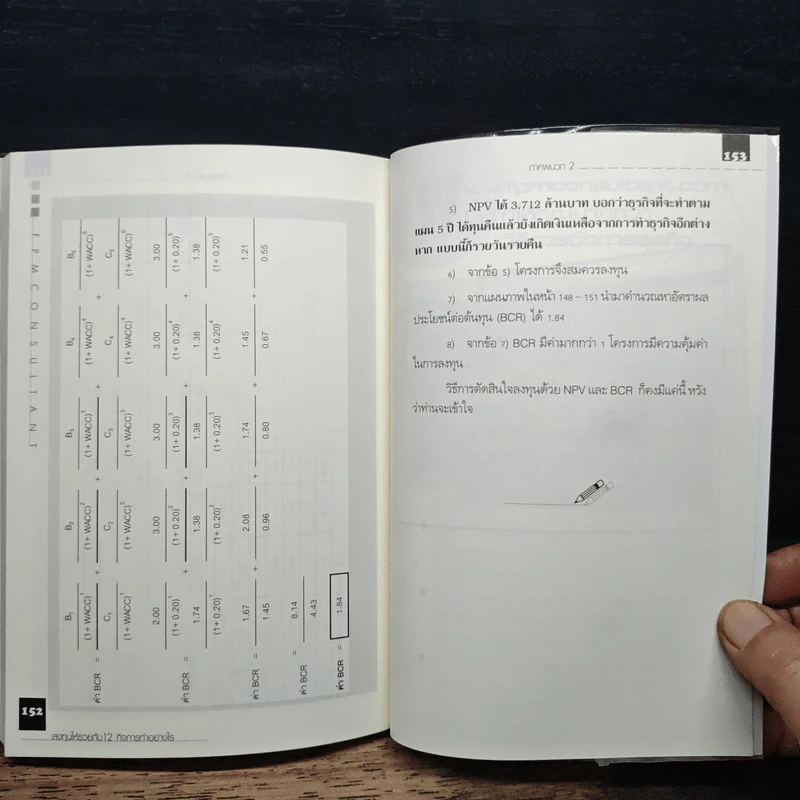 FPMCONSULTANT
ค่า BCR = B1 + B2 + B3 + B4 + B5
(1+ WACC)1 (1+ WACC)2 (1+ WACC)3 (1+ WACC)4 (1+ WACC)5
C1 C2 C3 C4 C5
(1+ WACC)1 (1+ WACC)2 (1+ WACC)3 (1+ WACC)4 (1+ WACC)5
ค่า BCR = 2.00 + 3.00 + 3.00 + 3.00 + 3.00
(1+ 0.20)1 (1+ 0.20)2 (1+ 0.20)3 (1+ 0.20)4 (1+ 0.20)5
1.74 1.38 1.38 1.38 1.38
(1+ 0.20)1 (1+ 0.20)2 (1+ 0.20)3 (1+ 0.20)4 (1+ 0.20)5
ค่า BCR = 1.67 + 2.08 + 1.74 + 1.45 + 1.21
1.45 0.96 0.80 0.67 0.55
ค่า BCR = 8.14
4.43
ค่า BCR = 1.84
152
ลงทุนให้รวยกับ12 กิจการทำอย่างไร
ภาคผนวก 2
153
5) NPV ได้ 3.712 ล้านบาท บอกว่าธุรกิจที่จะทำตาม
แผน 5 ปี ได้ทุนคืนแล้วยังเกิดเงินเหลือจากการทำธุรกิจอีกต่าง
หาก แบบนี้ก็รวยวันรวยคืน
6) จากข้อ 5) โครงการจึงสมควรลงทุน
7) จากแผนภาพในหน้า 148 - 151 นำมาคำนวณหาอัตราผล
ประโยชน์ต่อต้นทุน (BCR) ได้ 1.84
8) จากข้อ 7) BCR มีค่ามากกว่า 1 โครงการมีความคุ้มค่า
ในการลงทุน
วิธีการตัดสินใจลงทุนด้วย NPV และ BCR ก็คงมีแค่นี้ หวัง
ว่าท่านจะเข้าใจ